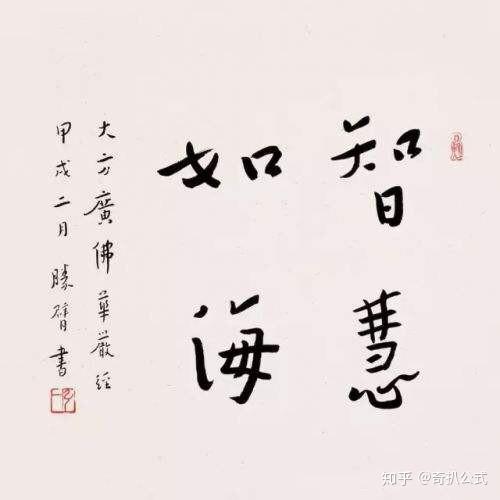 智慧
如海
大方廣佛華嚴經
甲戌二月勝臂書
知乎 @奇扒公式